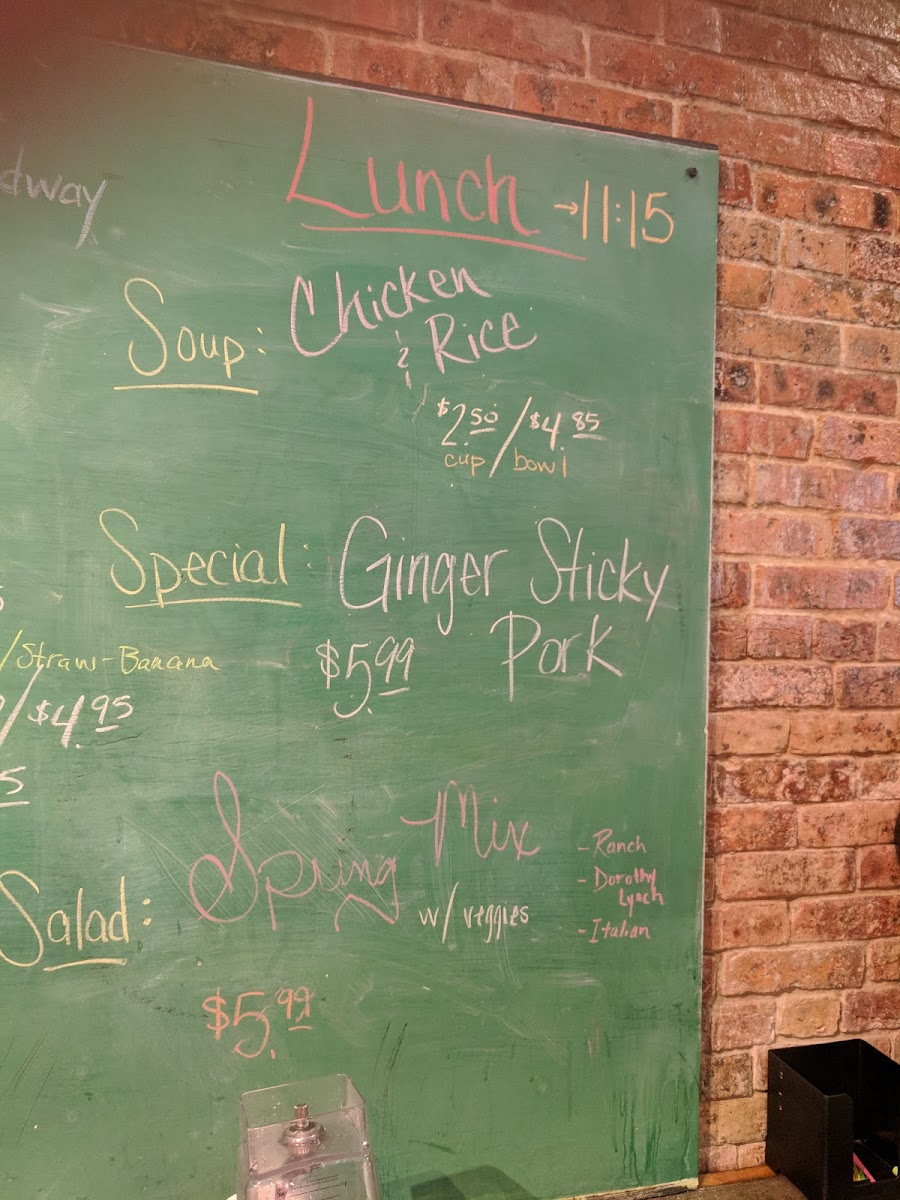 dway
Lunch →11:15
Soup: Chicken
& Rice
$2.50/$4.85
cup/bowl
Special: Ginger Sticky
Pork
$5.99
/Straw-Banana
/$4.95
5
Salad: Spring Mix
w/ veggies
- Ranch
- Dorothy
Lynch
- Italian
$5.99